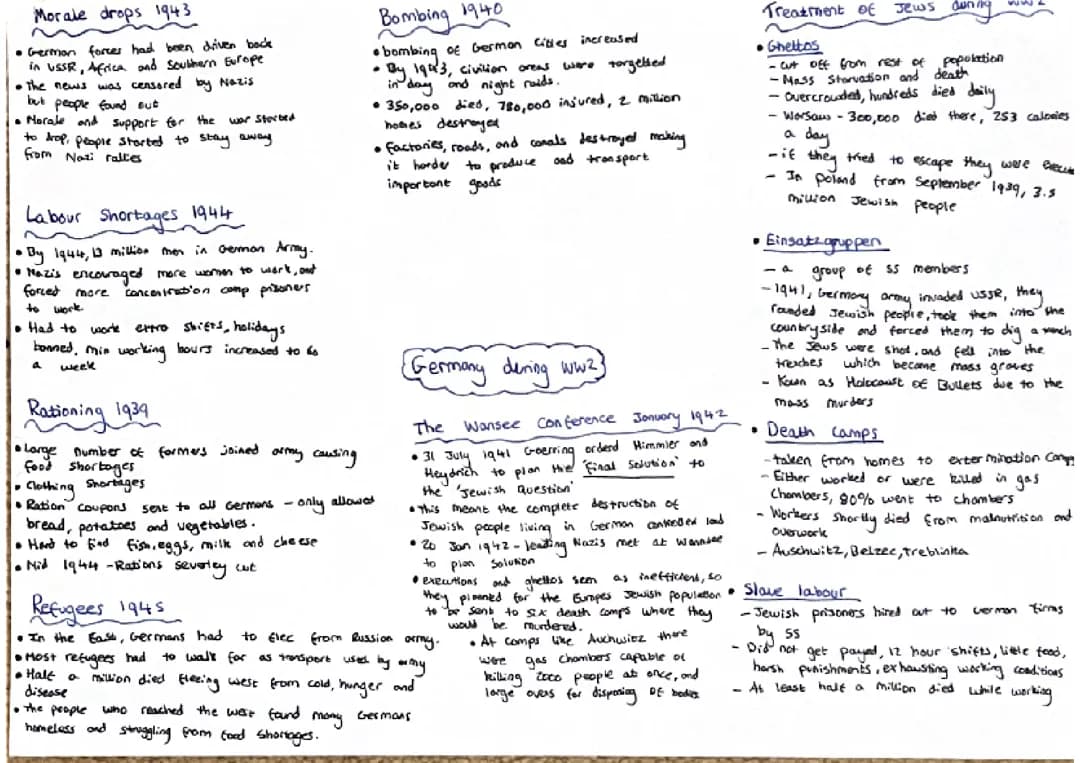 Morale drops 1943
• German forces had been driven back
in USSR, Africa and Southern Europe
• The news was censored by Nazis
but people found out
• Morale and support for the war started
to drop, people started to stay away
from Nazi rallies
Labour Shortages 1944
• By 1944, 13 million men in German Army.
• Nazis encouraged more women to work, and
forced more concentration camp prisoners
to work
• Had to work extra shifts, holidays
banned, min working hours increased to 60
a week
Rationing 1939
• Large number of farmers joined army causing
food shortages
• Clothing Shortages
• Ration coupons sent to all Germans - only allowed
bread, potatoes and vegetables.
• Hard to find fish, eggs, milk and cheese
• Mid 1944 - Rations severley cut
Refugees 1945
• In the East, Germans had to flee from Russian army.
• Most refugees had to walk far as transport used by army
• Half a million died fleeing west from cold, hunger and
disease
• The people who reached the west found many Germans
homeless and struggling from food shortages.
Bombing 1940
• bombing of German cities increased
• By 1943, civilian areas were targetted
in day and night raids.
• 350,000 died, 780,000 injured, 2 million
homes destroyed
• Factories, roads, and canals destroyed making
it harder to produce and transport
important goods
Germany during WW2
The Wansee Conference January 1942
• 31 July 1941 Goerring orderd Himmler and
Heydrich to plan the 'final solution' to
the 'Jewish Question'
• This meant the complete destruction of
Jewish people living in German controlled land
• 20 Jan 1942 - leading Nazis met at Wannsee
to plan solution
• executions and ghettos seen as inefficient, so
they planned for the Europes Jewish population
to be sent to six death camps where they
would be murdered.
• At camps like Auchwitz there
were gas chambers capable of
killing 2000 people at once, and
large ovens for disposing of bodies
Treatment of Jews during WW2
• Ghettos
- cut off from rest of population
- Mass Starvation and death
- Overcrowded, hundreds died daily
- Warsaw - 300,000 died there, 253 calories
a day
- if they tried to escape they were
- In Poland from September 1939, 3.5
million Jewish people
• Einsatzgruppen
- a group of SS members
- 1941, Germany army invaded USSR, they
rounded Jewish people, took them into the
countryside and forced them to dig a trench
- The Jews were shot, and fell into the
trenches which became mass graves
- Kown as Holocaust of Bullets due to the
mass murders
• Death camps
- taken from homes to extermination camps
- Either worked or were killed in gas
chambers, 80% went to chambers
- Workers shortly died from malnutrition and
overwork
- Auschwitz, Belzec, Treblinka
• Slave labour
- Jewish prisoners hired out to German firms
by SS
- Did not get payed, 12 hour shifts, little food,
harsh punishments, exhausting working conditions
- At least half a million died while working